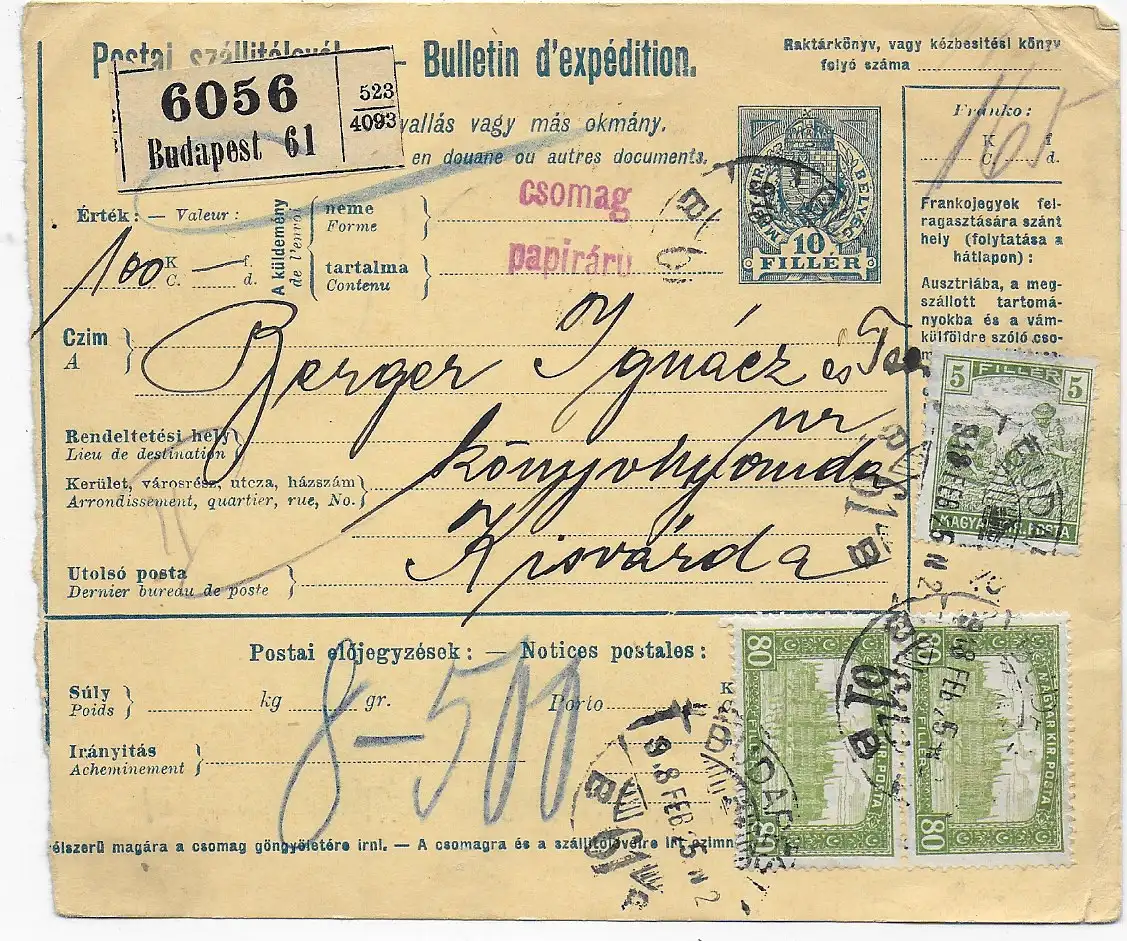 Postai szállitólevél — Bulletin d'expédition.
Raktárkönyv, vagy kézbesitési könyv
folyó száma
6056
523
4093
Budapest 61
vallás vagy más okmány.
en douane ou autres documents.
Franko:
K f
C. d.
1 65
csomag
papiráru
M. KIR. BÉLYEG
10
FILLÉR
Érték: — Valeur:
100 K — f.
C. d.
A küldemény
de l'envoi
neme
Forme
tartalma
Contenu
Frankojegyek fel-
ragasztására szánt
hely (folytatása a
hátlapon):
Ausztriába, a meg-
szállott tartomá-
nyokba és a vám-
külföldre szóló cso-
Czim
A
Berger Ignácz és
ur
Rendeltetési hely
Lieu de destination
könyvnyomda
Kerület, városrész, utcza, házszám
Arrondissement, quartier, rue, No.
Kisvárda
Utolsó posta
Dernier bureau de poste
5 FILLÉR 5
MAGYAR KIR. POSTA
918 FEB 25 N 2
Postai előjegyzések: — Notices postales:
Súly
Poids
kg gr.
8-500
Porto
K
Irányitás
Acheminement
80 MAGYAR KIR. POSTA FILLÉR 80
80 MAGYAR KIR. POSTA FILLÉR 80
BUDAPEST
918 FEB 25 N 2
61
élszerű magára a csomag göngyöletére irni. — A csomagra és a szállitólevélre irt czimn